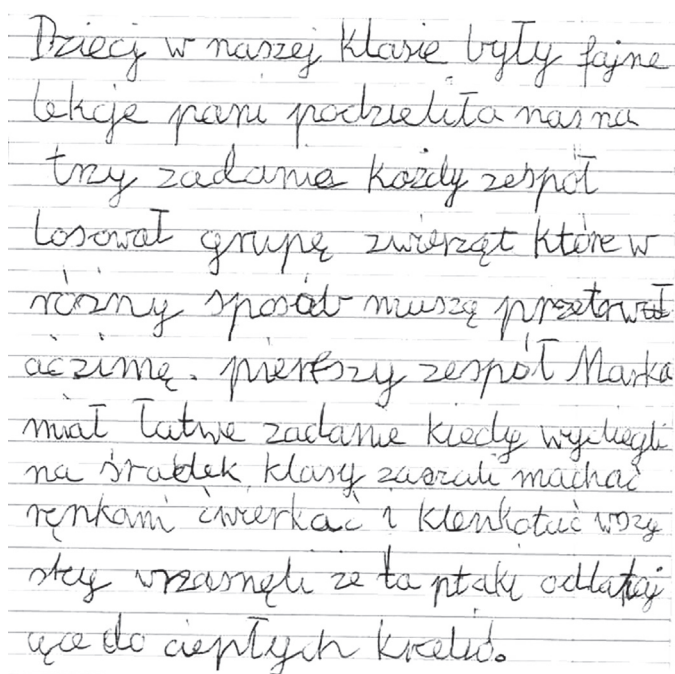 Dzieci w naszej klasie były fajne
lekcje pani podzieliła nas na
trzy zadania każdy zespół
losował grupę zwierząt które w
różny sposób muszę przetrwał
ać zimę. pierszy zespół Marka
miał łatwe zadanie kiedy wybiegli
na śradek klasy zaczali machać
ręnkami ćwierkać i klenkotać wszy
stcy wrzasnęli że ta ptaki odlataj
ące do ciepłych krai.